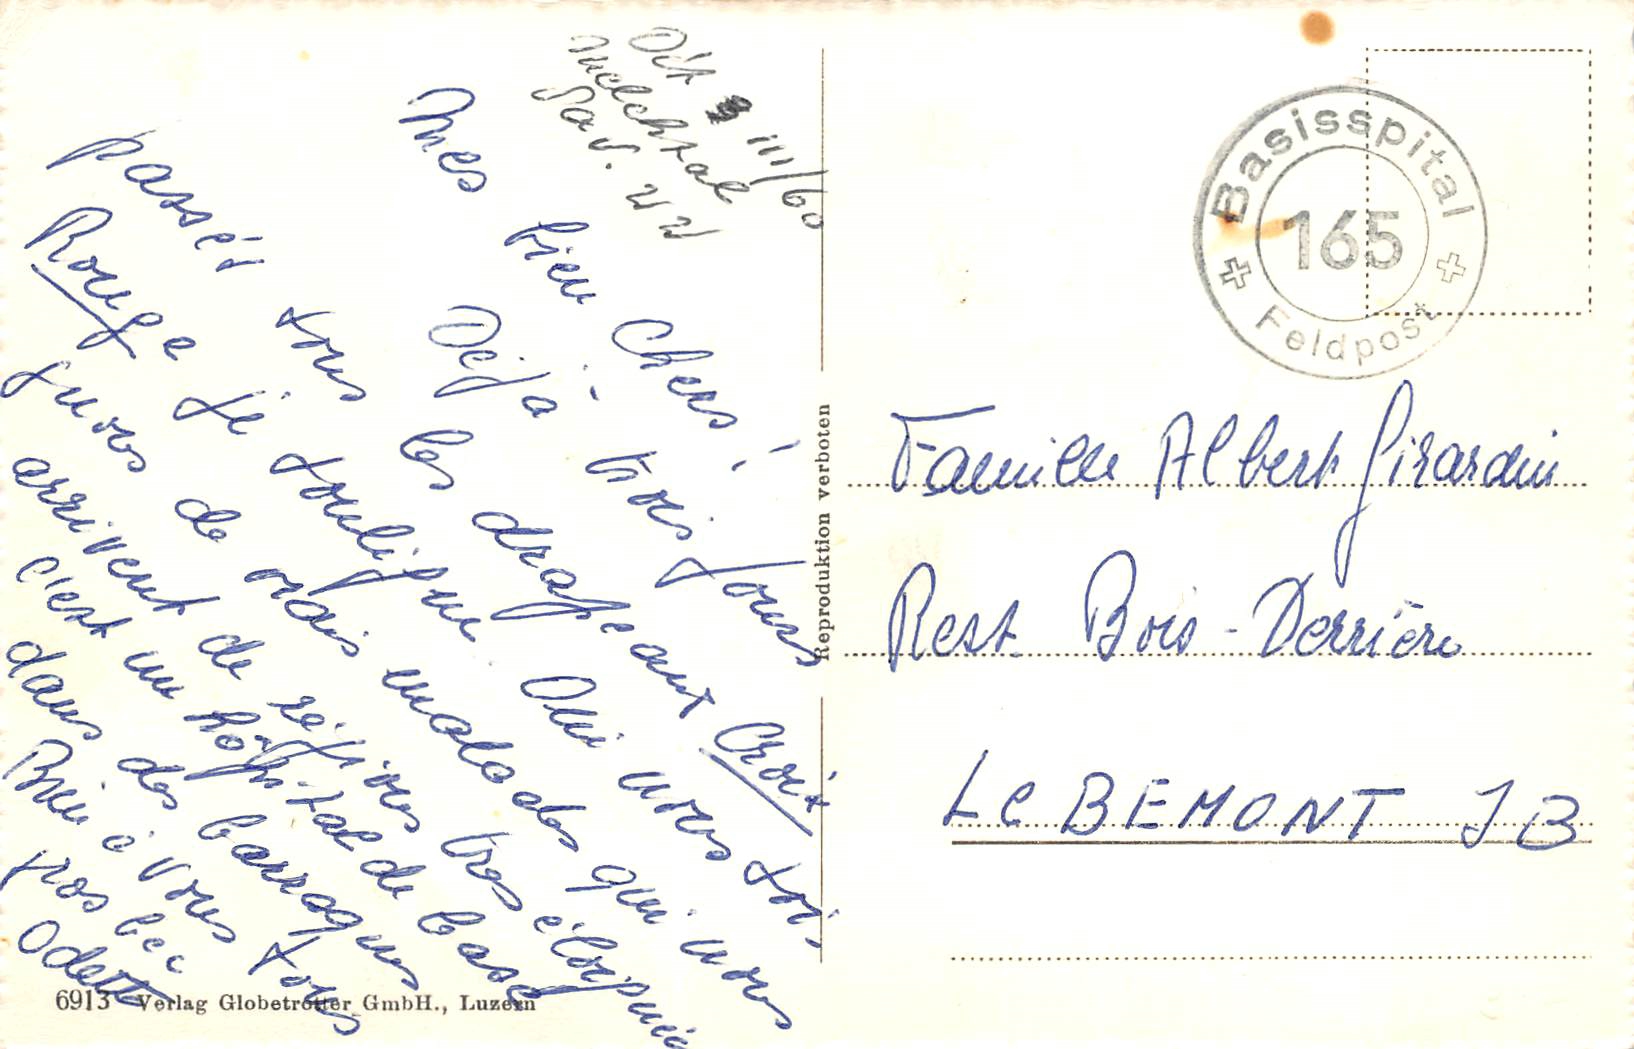 Mes bien Chers!
Déjà trois jours
passés tous les drapeaux Croix
Rouge je souligne. Oui nous soi-
gnons de vrais malades qui nous
arrivent de régions très éloignées
c'est un hôpital de base
dans des barraques
Bien à vous tous
gros bec
Odette
III/60
Melchtal
Basisspital
165
Feldpost
Famille Albert Girardin
Rest. Bois-Derrière
Le BEMONT JB
Reproduktion verboten
6913 Verlag Globetrotter GmbH., Luzern